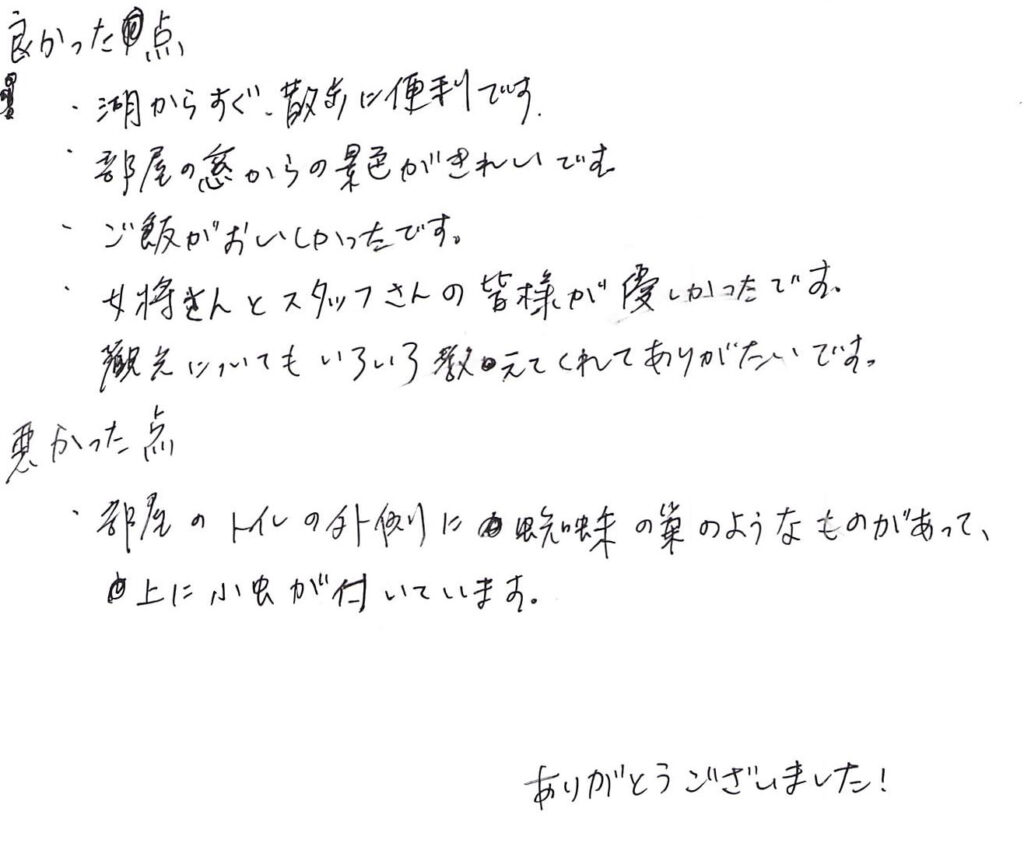 良かった点
・湖からすぐ、散歩に便利です.
・部屋の窓からの景色がきれいです
・ご飯がおいしかったです。
・女将さんとスタッフさんの皆様が優しかったです.
観光についてもいろいろ教えてくれてありがたいです。
悪かった点
・部屋のトイレの外側に蜘蛛の巣のようなものがあって、
上に小虫が付いています。
ありがとうございました!